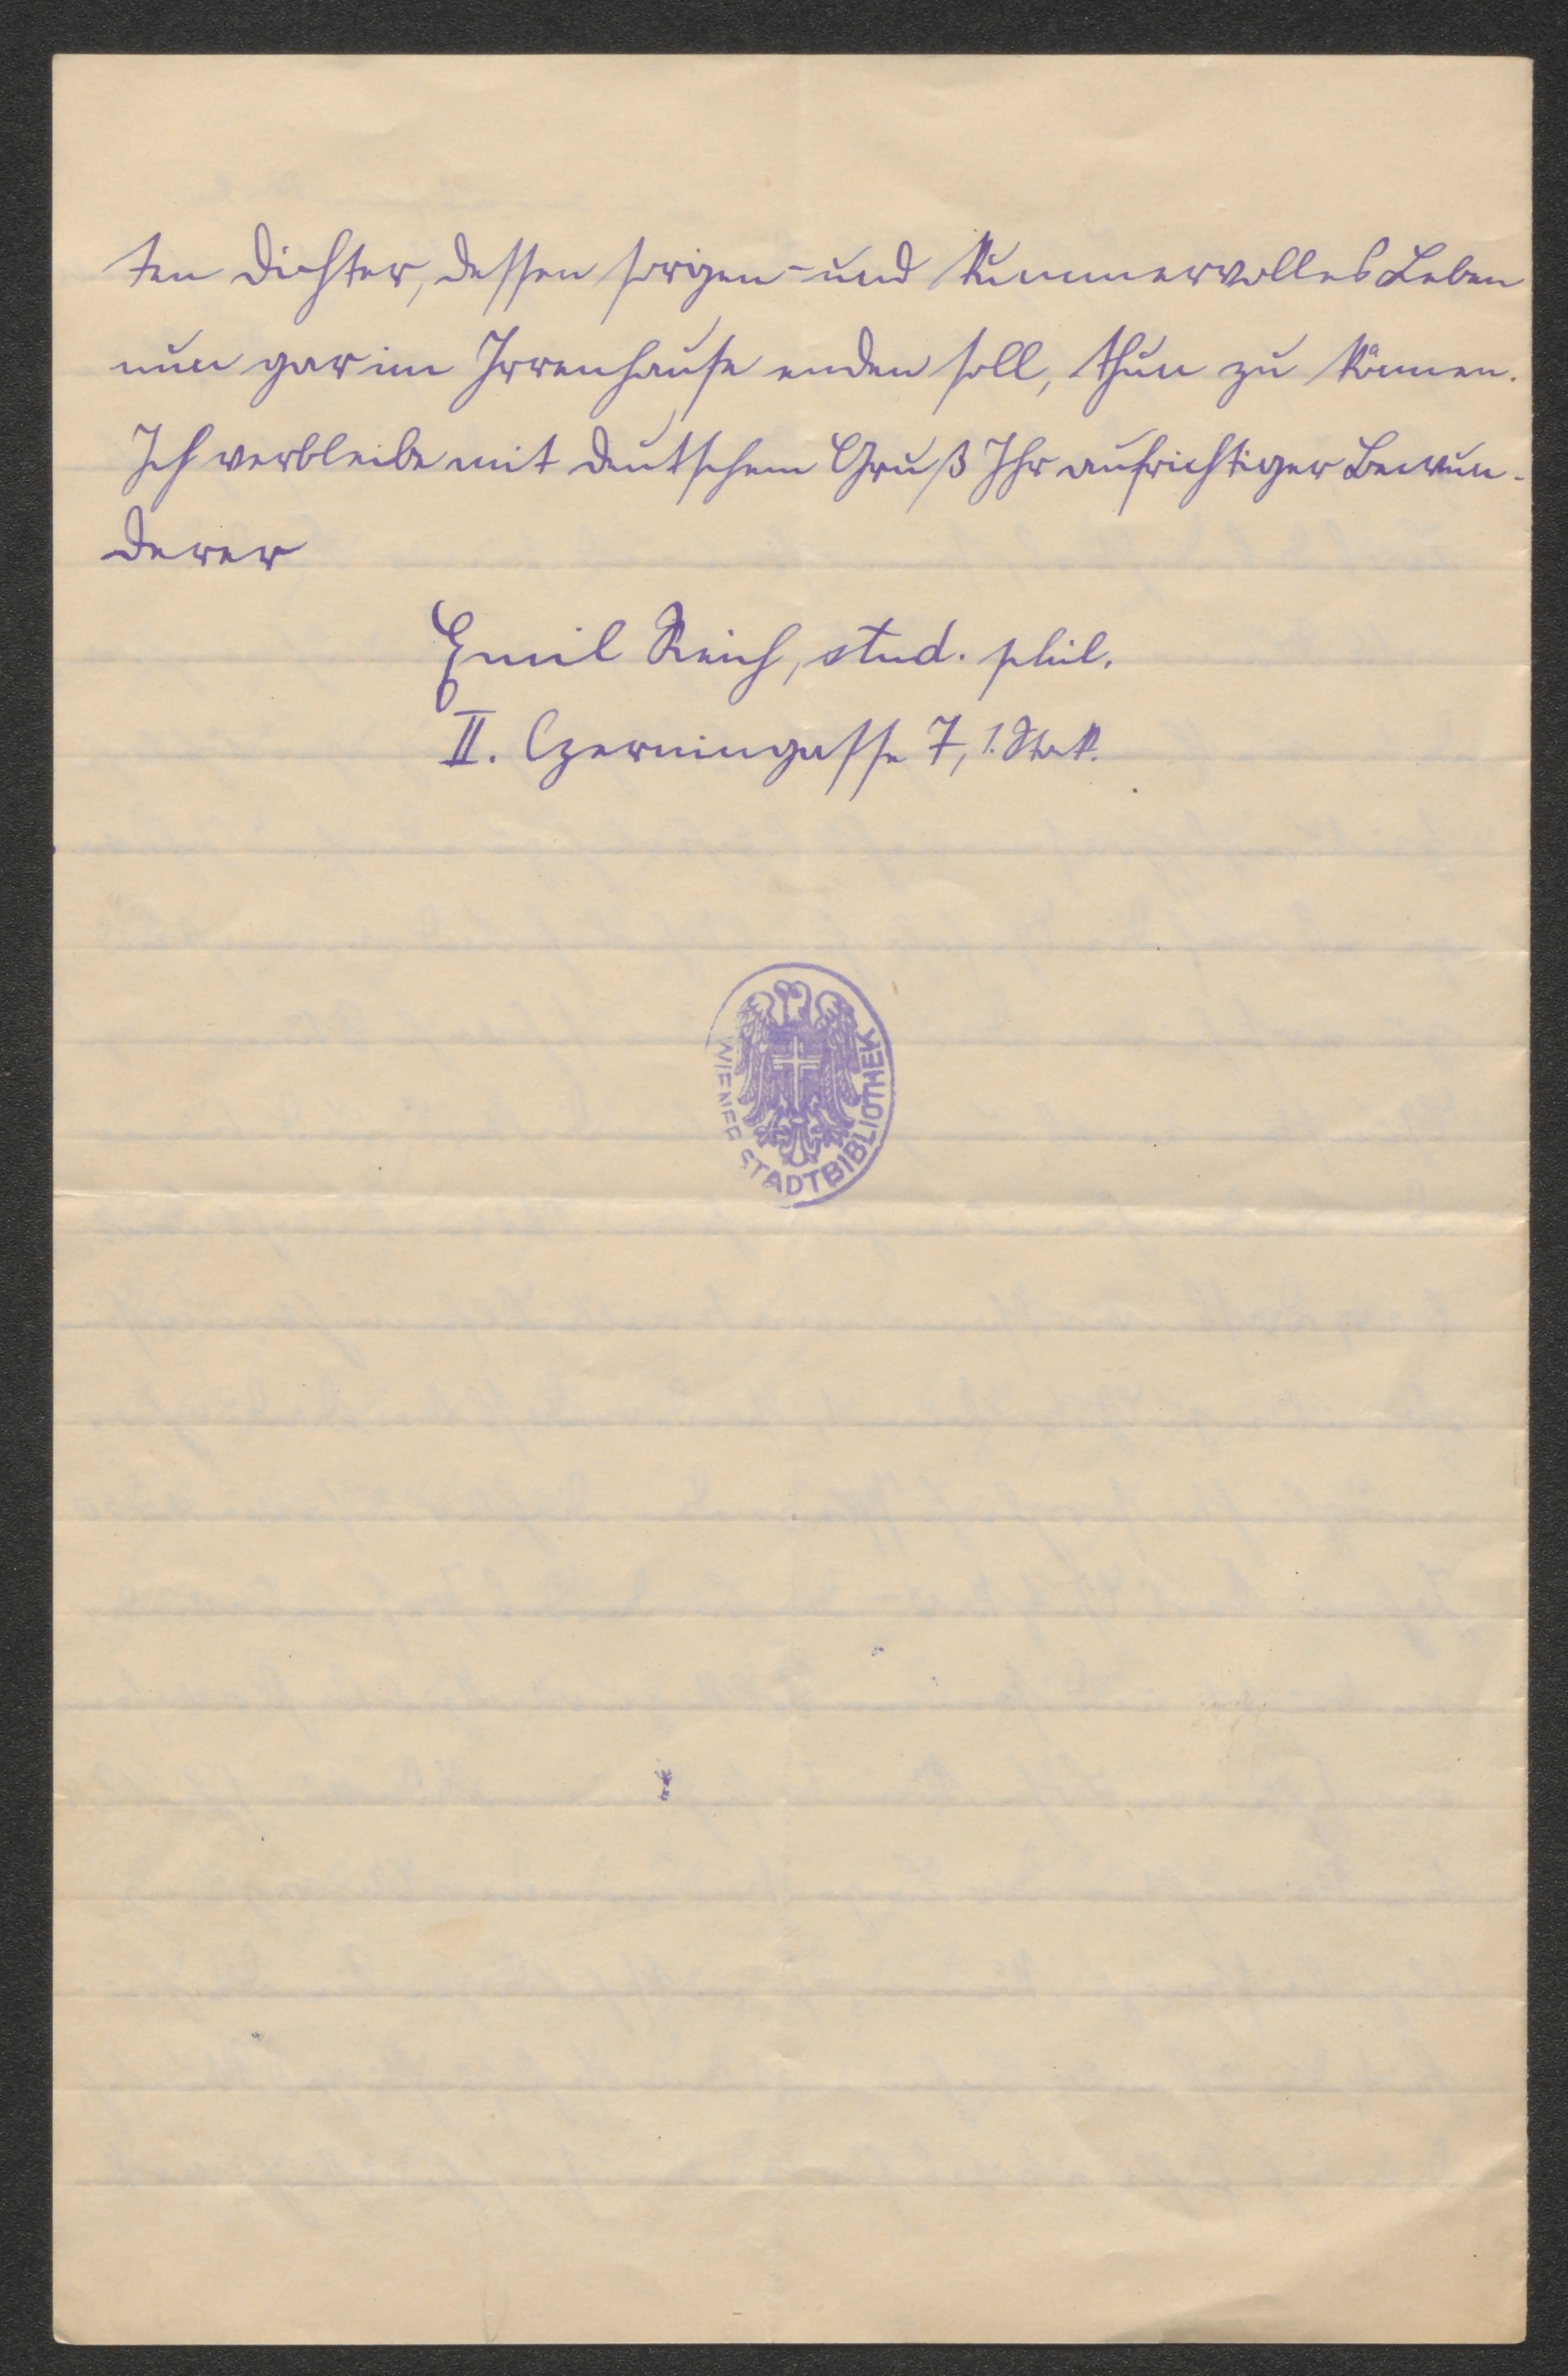 ten Dichter, dessen sorgen- und kummervolles Leben
nun gar im Irrenhause enden soll, thun zu können.
Ich verbleibe mit deutschem Gruß Ihr aufrichtiger Bewun-
derer
Emil Reich, stud. phil.
II. Czerningasse 7, 1. Stock.
WIENER STADTBIBLIOTHEK